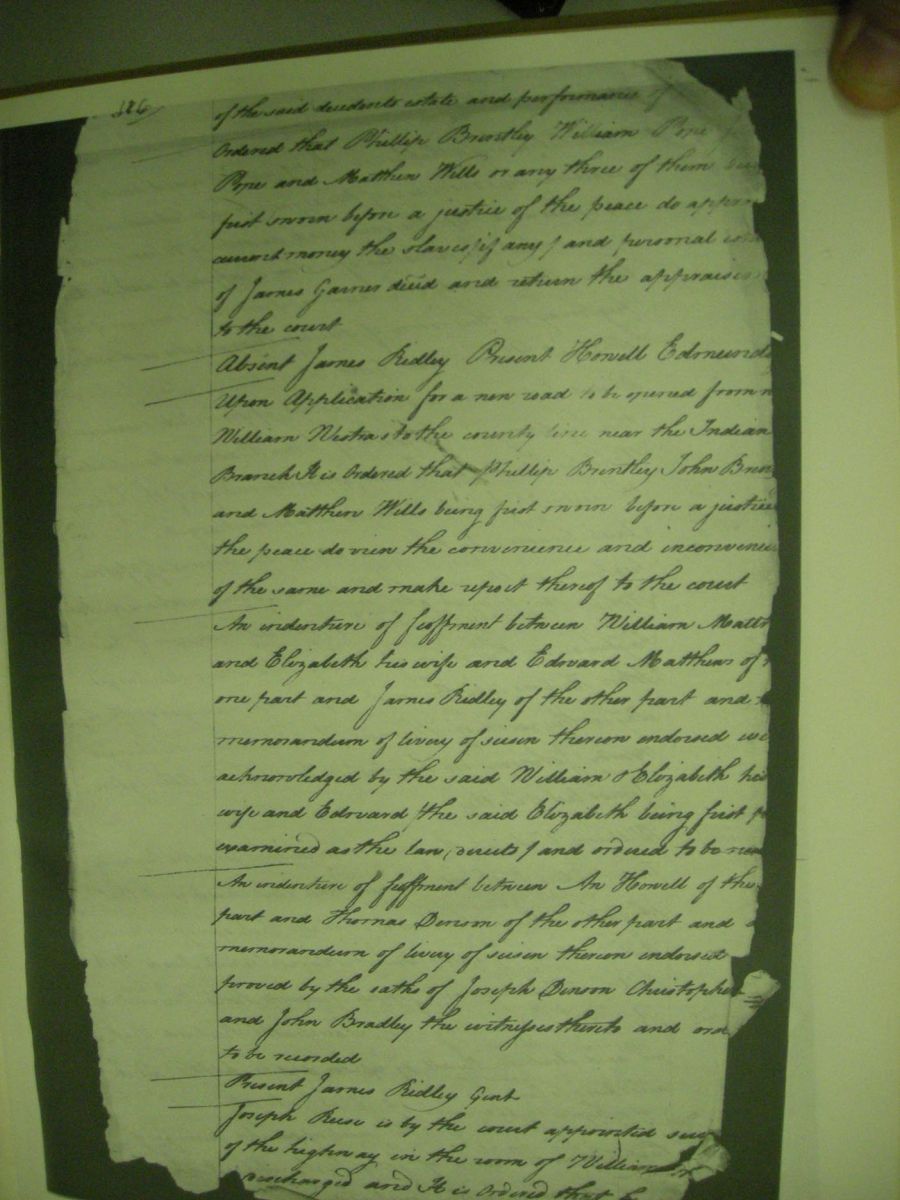 186
of the said decedents estate and performance of
Ordered that Phillip Brantley William Pope
Pope and Matthew Wills or any three of them
first sworn before a justice of the peace do appra
current money the slaves (if any) and personal
of James Garner decd and return the appraisem
to the court
Absent James Ridley Present Howell Edmunds
Upon Application for a new road to be opened from
William Westras to the county line near the Indian
Branch It is Ordered that Phillip Brantley John
and Matthew Wills being first sworn before a justice
the peace do view the convenience and inconvenie
of the same and make report thereof to the court
An indenture of feoffment between William Matt
and Elizabeth his wife and Edward Matthews of
one part and James Ridley of the other part and
memorandum of livery of seisen thereon endorsed
acknowledged by the said William & Elizabeth his
wife and Edward (the said Elizabeth being first
examined as the law directs) and ordered to be
An indenture of feoffment between Howell of the
part and Thomas Denson of the other part and
memorandum of livery of seisen thereon endorsed
proved by the oaths of Joseph Denson Christopher
and John Bradley the witnesses thereto and ord
to be recorded
Present James Ridley Gent
Joseph Reese is by the court appointed
of the highway in the room of William
discharged and It is Ordered that